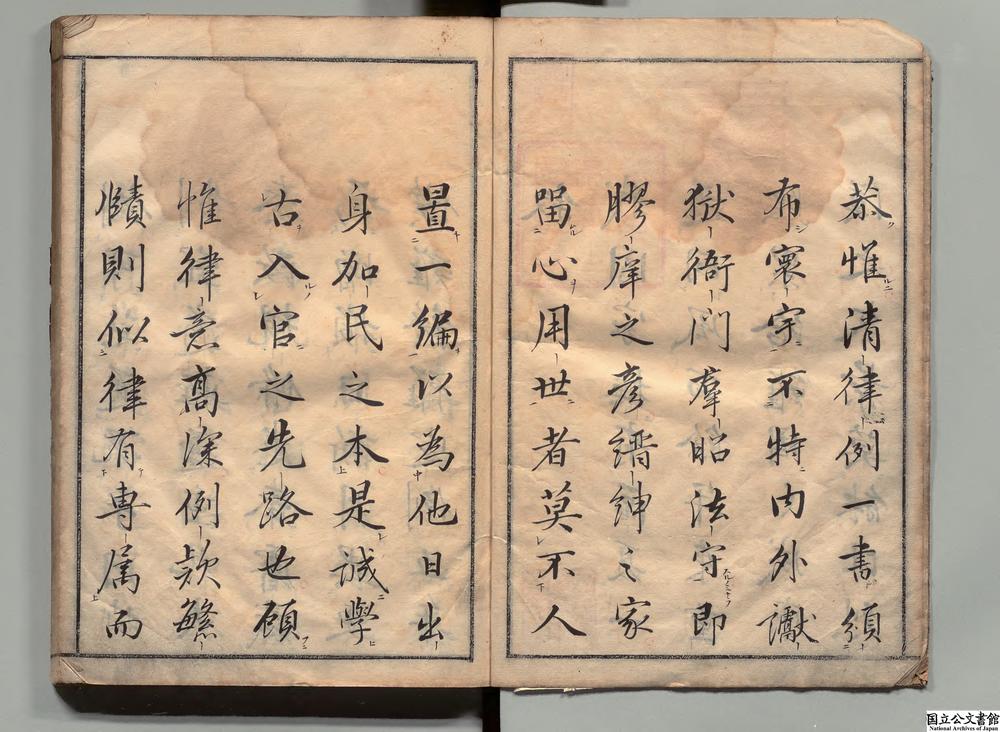 恭惟清律例一書頒
布寰宇不特内外讞
獄衙門羣昭法守即
膠庠之彦縉紳之家
留心用世者莫不人
置一編以為他日出
身加民之本是誠學
古入官之先路也顧
惟律意髙深例款繁
賾則似律有専属而
国立公文書館
National Archives of Japan